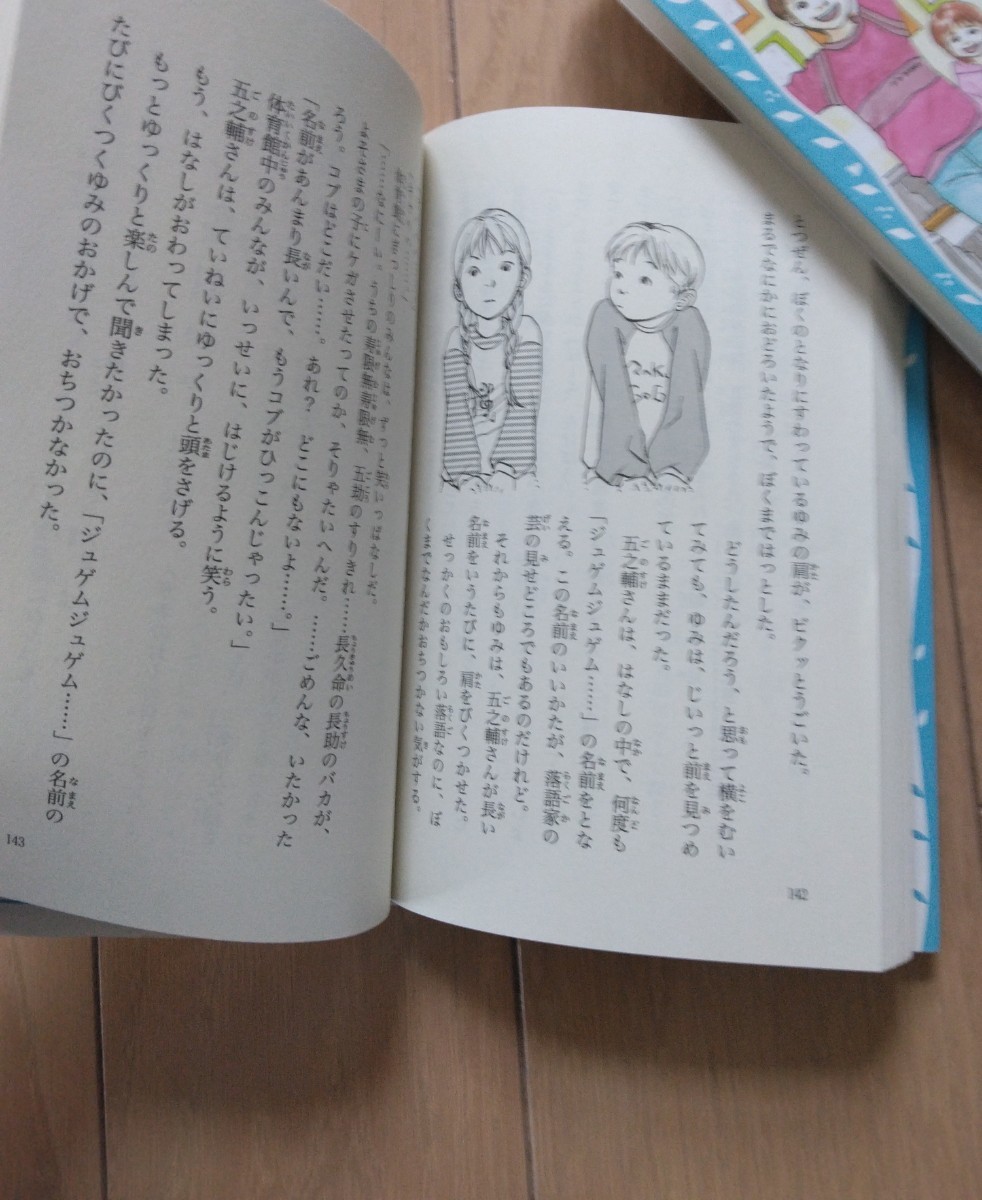 とつぜん、ぼくのとなりにすわっているゆみの肩が、ビクッとうごいた。
まるでなにかにおどろいたようで、ぼくまではっとした。
どうしたんだろう、と思って横をむい
てみても、ゆみは、じいっと前を見つめ
ているままだった。
五之輔さんは、はなしの中で、何度も
「ジュゲムジュゲム……」の名前をとな
える。この名前のいいかたが、落語家の
芸の見せどころでもあるのだけれど。
それからもゆみは、五之輔さんが長い
名前をいうたびに、肩をびくつかせた。
せっかくのおもしろい落語なのに、ぼ
くまでなんだかおちつかない気がする。
142
みんなは、ずっと笑いっぱなしだ。
「……なにーい。うちの寿限無寿限無、五劫のすりきれ……長久命の長助のバカが、
よそさまの子にケガさせたってのか、そりゃたいへんだ。……ごめんな、いたかった
ろう。コブはどこだい……。あれ？　どこにもないよ……。」
「名前があんまり長いんで、もうコブがひっこんじゃったい。」
体育館中のみんなが、いっせいに、はじけるように笑う。
五之輔さんは、ていねいにゆっくりと頭をさげる。
もう、はなしがおわってしまった。
もっとゆっくりと楽しんで聞きたかったのに、「ジュゲムジュゲム……」の名前の
たびにびくつくゆみのおかげで、おちつかなかった。
143